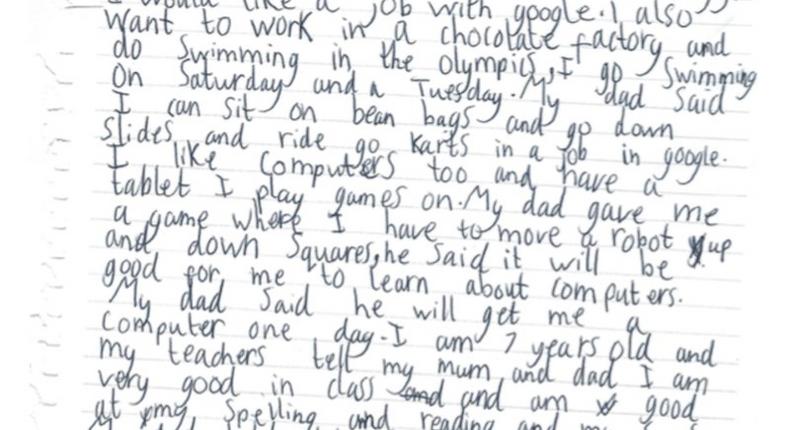 I would like a job with google. I also
want to work in a chocolate factory and
do swimming in the olympics, I go swimming
on Saturday and a Tuesday. My dad said
I can sit on bean bags and go down
slides and ride go karts in a job in google.
I like computers too and have a
tablet I play games on. My dad gave me
a game where I have to move a robot up
and down squares, he said it will be
good for me to learn about computers.
My dad said he will get me a
computer one day. I am 7 years old and
my teachers tell my mum and dad I am
very good in class and and am good
at my spelling and reading and my